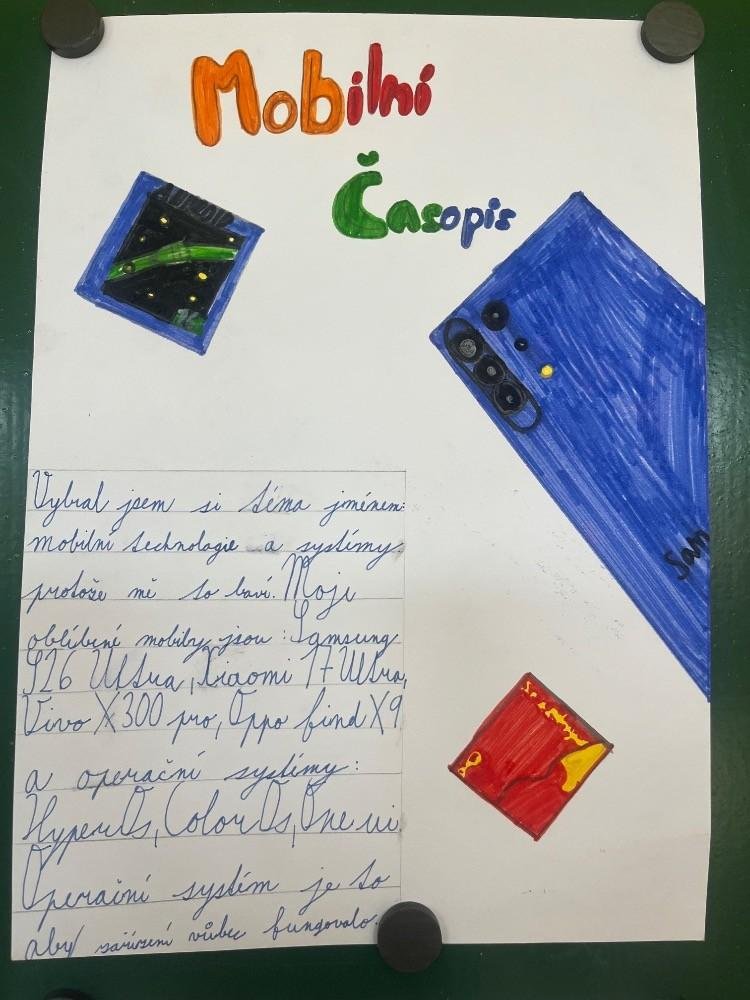 Mobilní
Časopis
Sam
Vybral jsem si téma jménem:
mobilní technologie a systémy.
protože mě to baví. Moje
oblíbené mobily jsou: Samsung
S26 Ultra, Xiaomi 17 Ultra,
Vivo X300 pro, Oppo find X9
a operační systémy:
HyperOs, ColorOs, One ui.
Operační systém je to
aby zařízení vůbec fungovalo.